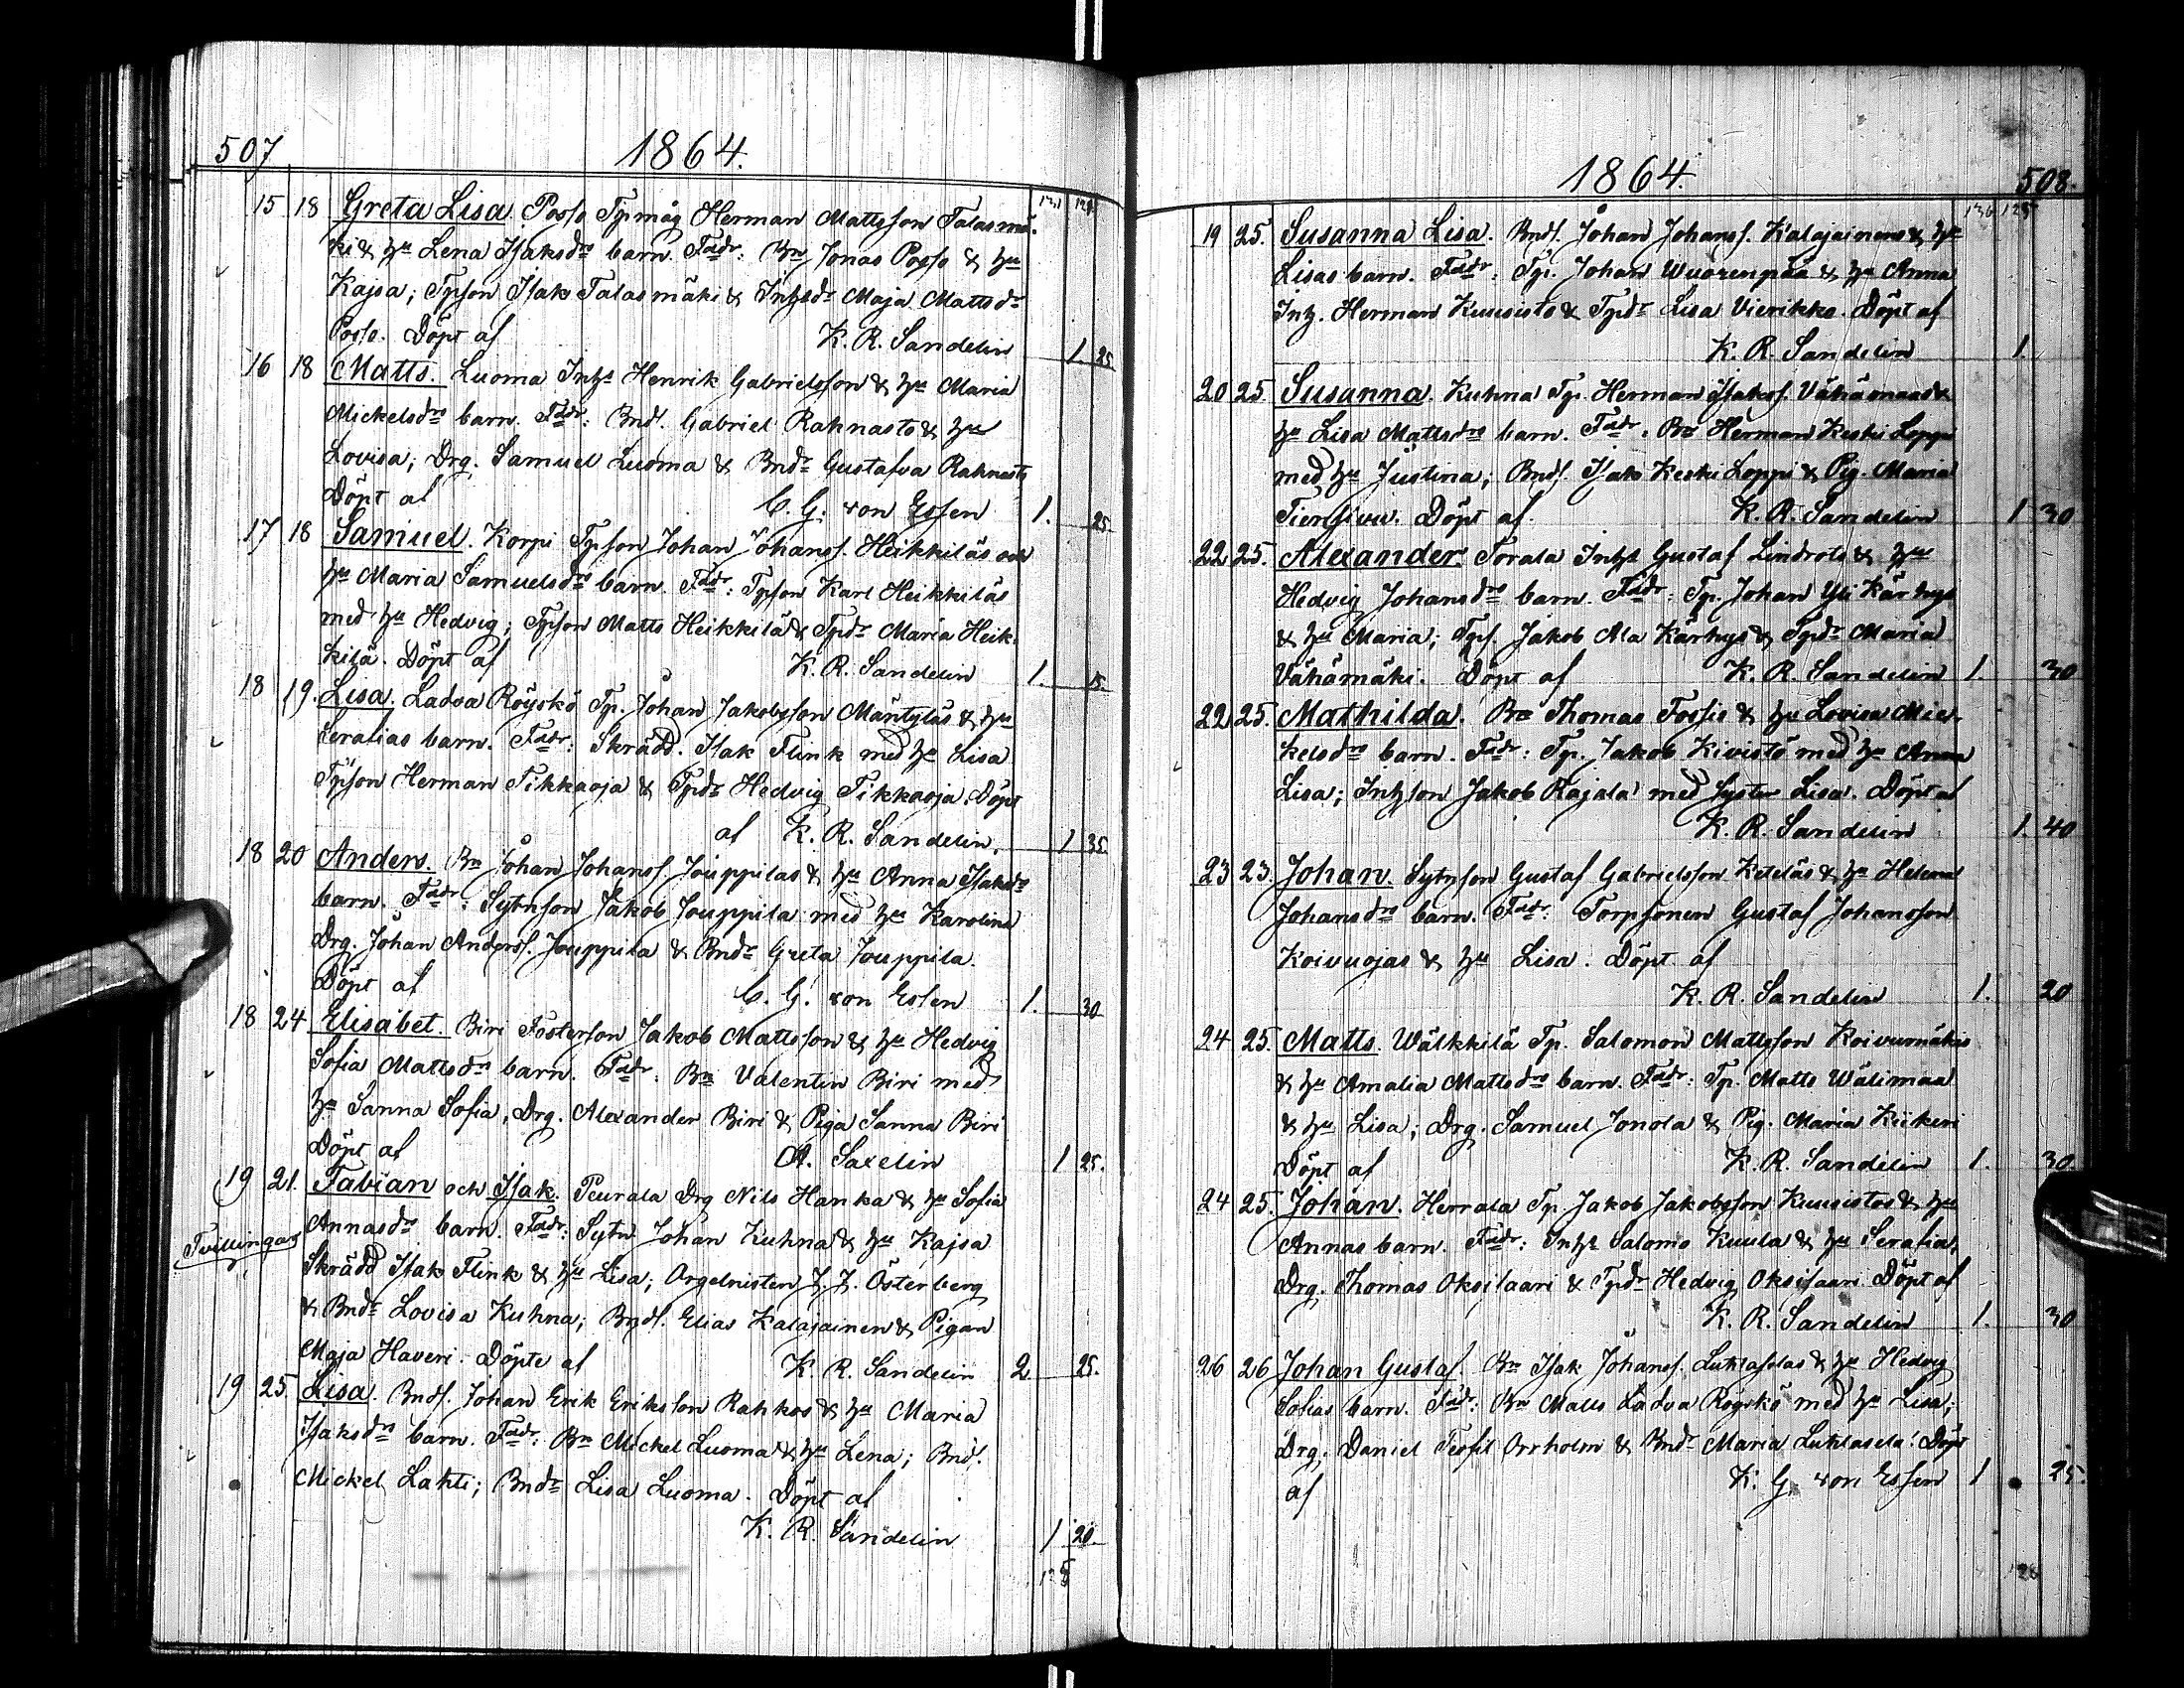 507
1864.
15 18 Greta Lisa. Posso Tpmåg Herman Mattsson Talasmä-
ki & hu Lena Isaksdrs barn. Fadr: Bn Jonas Posso & hu
Kajsa; Tpson Isak Talasmäki & Inhsdr Maja Mattsdr
Posso. Döpt af K. R. Sandelin 1 25
16 18 Matts. Luoma Inhs Henrik Gabrielsson & hu Maria
Mickelsdrs barn. Fadr: Bnds. Gabriel Rahnasto & hu
Lovisa; Drg. Samuel Luoma & Bndr Gustafva Rahnasto
Döpt af C. G. von Essen 1. 25
17 18 Samuel. Korpi Tpson Johan Johanss. Heikkiläs och
hu Maria Samuelsdrs barn. Fadr: Tpson Karl Heikkiläs
med hu Hedvig; Tpson Matts Heikkilä & Tpdr Maria Heik-
kilä. Döpt af K. R. Sandelin 1. 15.
18 19. Lisa. Ladva Röyskö Tp. Johan Jakobsson Mäntyläs & hu
Serafias barn. Fadr: Skrädd. Isak Flink med hu Lisa
Tpson Herman Tikkaoja & Tpdr Hedvig Tikkaoja. Döpt
af K. R. Sandelin. 1 35.
18 20 Anders. Bn Johan Johanss. Jouppilas & hu Anna Isaksdrs
barn. Fadr: Sytnson Jakob Jouppila med hu Karolina
Drg. Johan Anderss. Jouppila & Bndr Greta Jouppila.
Döpt af C. G. von Essen 1. 30
18 24 Elisabet. Biri Fosterson Jakob Mattsson & hu Hedvig
Sofia Mattsdrs barn. Fadr: Bn Valentin Biri med
hu Sanna Sofia, Drg. Alexander Biri & Piga Sanna Biri
Döpt af A. Saxelin 1 25.
19 21. Fabian och Isak. Peurala Drg Nils Hanka & hu Sofia
Annasdrs barn. Fadr: Sytn Johan Kuhna & hu Kajsa
Tvillingar
Skrädd Isak Flink & hu Lisa; Orgelnisten J. J. Österberg
& Bndr Lovisa Kuhna; Bnds. Elias Kalajainen & Pigan
Maja Haveri. Döpte af K. R. Sandelin 2 25.
19 25 Lisa. Bnds. Johan Erik Eriksson Rahkos & hu Maria
Isaksdrs barn. Fadr: Bn Mickel Luoma & hu Lena; Bnds.
Mickel Lahti; Bndr Lisa Luoma. Döpt af
K. R. Sandelin 1 20.
1864.
508.
136 125
19 25. Susanna Lisa. Bnds. Johan Johanss. Kalajainens & hu
Lisas barn. Fadr: Tp. Johan Wuorenpää & hu Anna
Inh. Herman Kuusisto & Tpdr Lisa Vierikko. Döpt af
K. R. Sandelin 1.
20 25. Susanna. Kuhna Tp. Herman Isakss. Vähämaas &
hu Lisa Mattsdrs barn. Fadr: Bn Herman Keski Loppi
med hu Justina; Bnds. Isak Keski Loppi & Pig. Maria
Tiensivu. Döpt af K. R. Sandelin 1 30
22 25. Alexander. Torala Inhs Gustaf Lindrots & hu
Hedvig Johansdrs barn. Fadr: Tp. Johan Yli Kärhys
& hu Maria; Tps. Jakob Ala Kärhys & Tpdr Maria
Vähämäki. Döpt af K. R. Sandelin 1. 30
22 25. Mathilda. Bn Thomas Fossis & hu Lovisa Mic-
kelsdrs barn. Fadr: Tp. Jakob Kivistö med hu Anna
Lisa; Inhson Jakob Rajala med syster Lisa. Döpt af
K. R. Sandelin 1 40
23 23. Johan. Sytnson Gustaf Gabrielsson Keteläs & hu Helena
Johansdrs barn. Fadr: Torpsonen Gustaf Johansson
Koivuojas & hu Lisa. Döpt af
K. R. Sandelin 1. 20
24 25. Matts. Wälkkilä Tp. Salomon Mattsson Koivumäkis
& hu Amalia Mattsdrs barn. Fadr: Tp. Matts Wälimaa
& hu Lisa; Drg. Samuel Jonola & Pig. Maria Kiikeri
Döpt af K. R. Sandelin 1. 30
24 25. Johan. Herrala Tp. Jakob Jakobsson Kuusistos & hu
Annas barn. Fadr: Inhs Salomo Kuula & hu Serafia,
Drg. Thomas Oksilaari & Tpdr Hedvig Oksilaari. Döpt af
K. R. Sandelin 1. 30
26 26 Johan Gustaf. Bn Isak Johanss. Luhtaselas & hu Hedvig
Sofias barn. Fadr: Bn Matts Ladva Röyskö med hu Lisa;
Drg. Daniel Teofil Orrholm & Bndr Maria Luhtasela. Döpt
af K. G. von Essen 1 25.
126